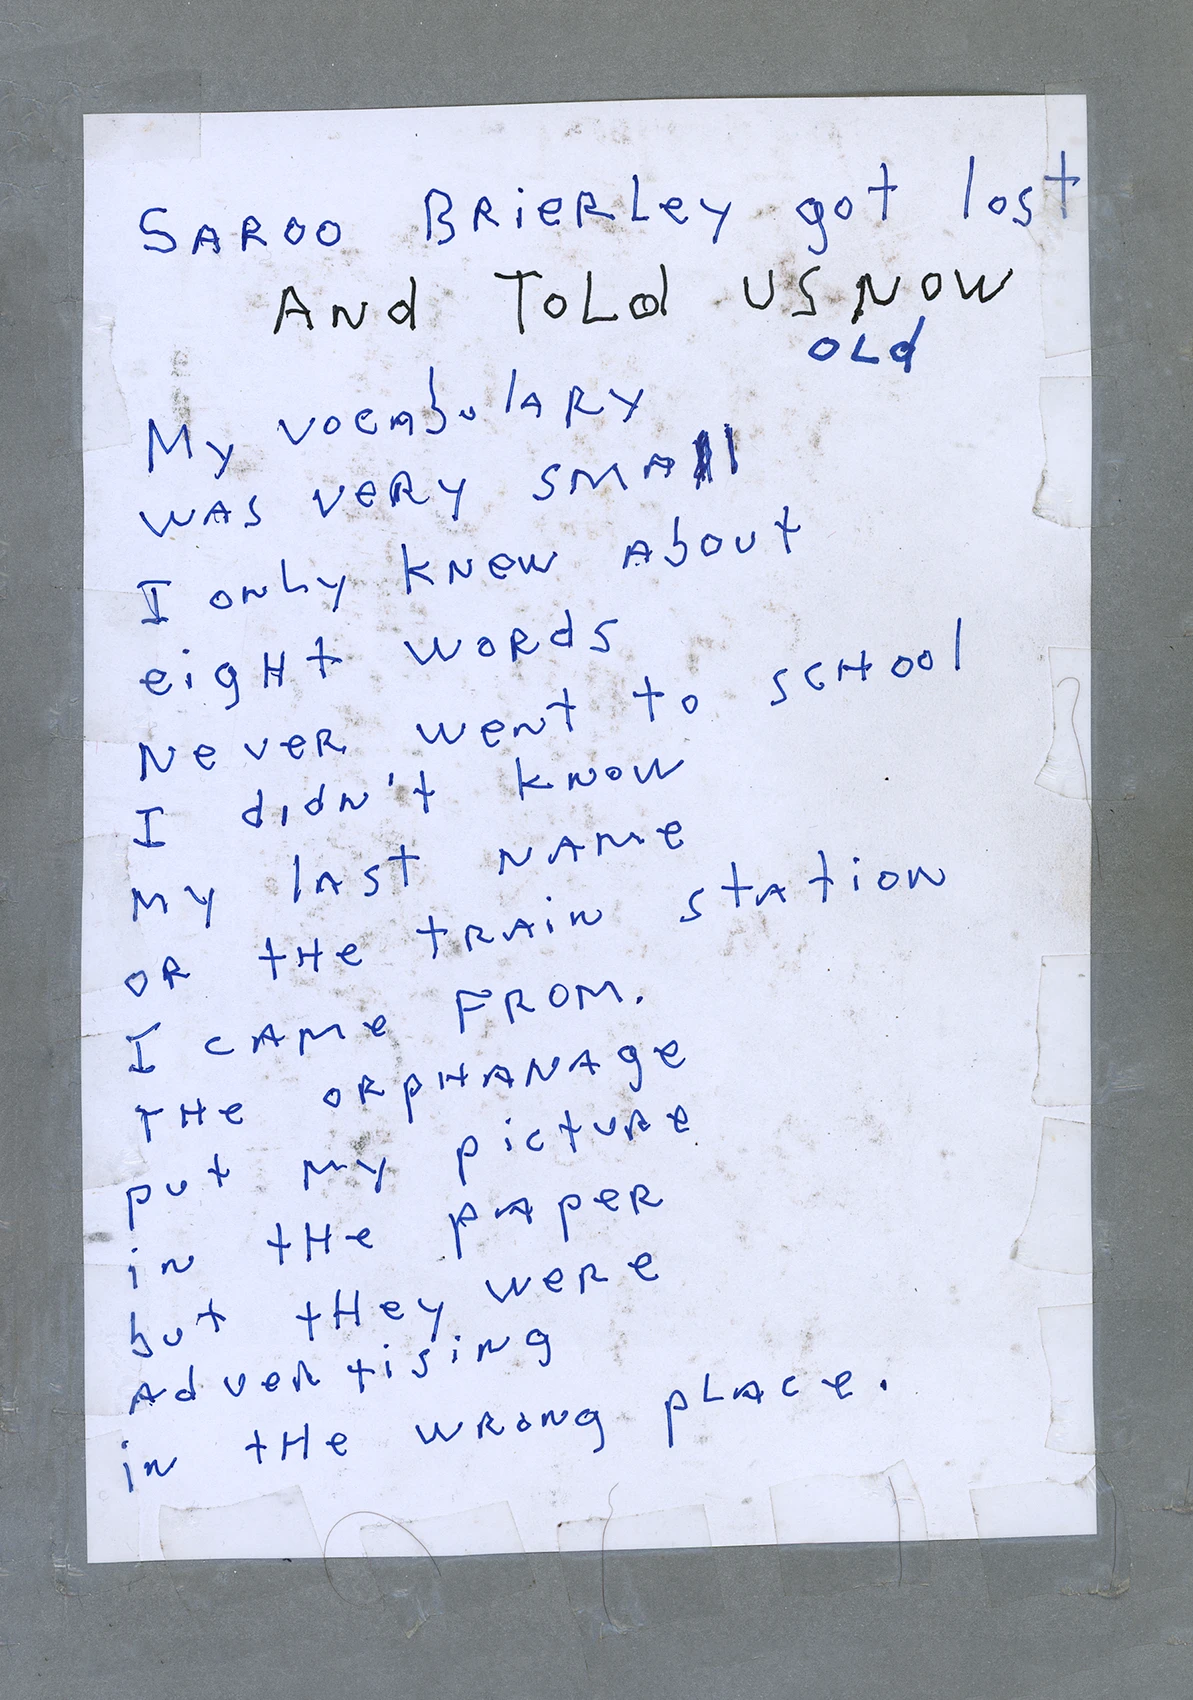 SAROO BRIERLey got lost
ANd ToLd US NOW
OLd
My vocabulARY
WAS VeRY SMAll
I only knew About
eigHt WORdS
NeveR went to scHool
I didn't know
My lAst NAMe
OR tHe tRAin stAtion
I CAMe FROM.
THe ORpHANAge
put My pictuRe
in tHe pApeR
but tHey weRe
AdveRtising
in tHe wRong pLAce.